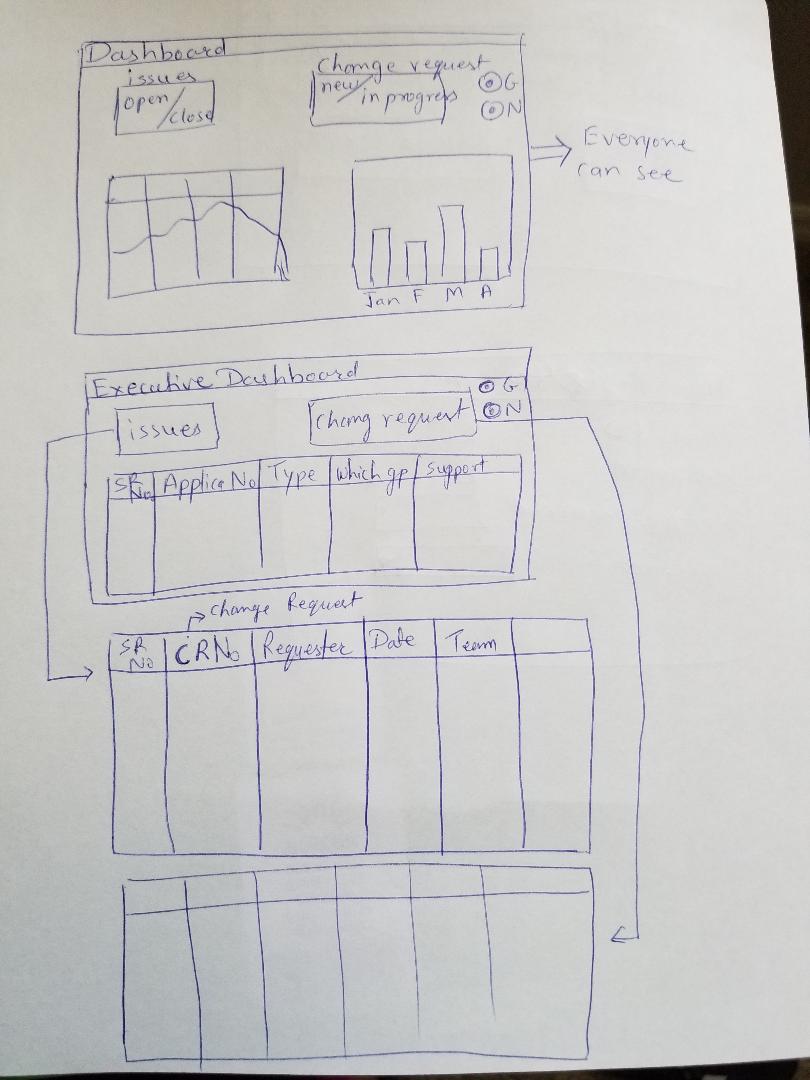 Dashboard
issues
open/close
Change request
new/in progress
G
N
Everyone
can see
Jan F M A
Executive Dashboard
G
N
issues
Chang request
SR
No
Applica No
Type
Which gp
Support
Change Request
SR
No
CRNo
Requester
Date
Team